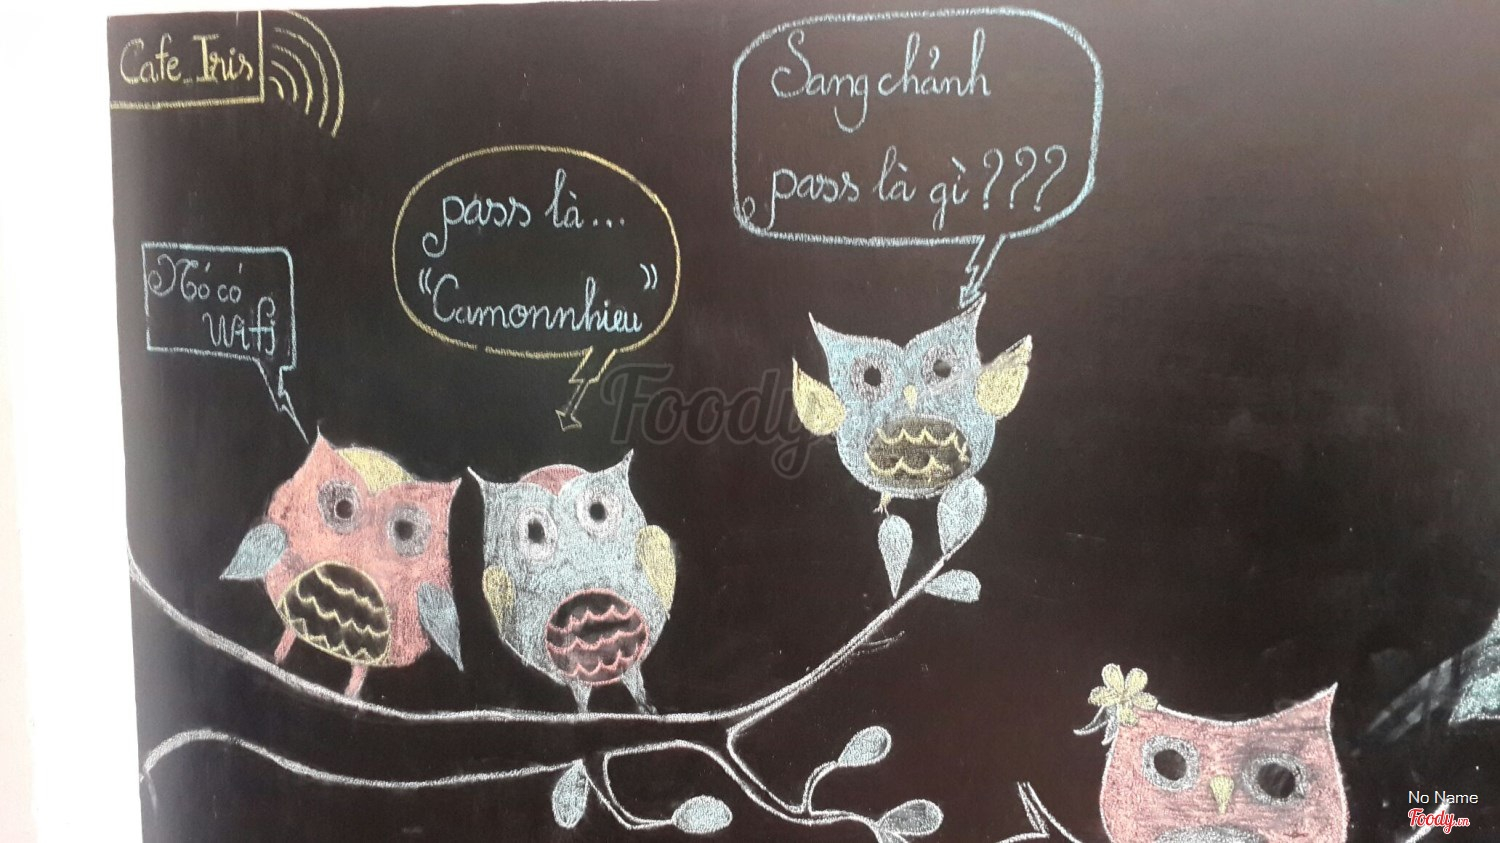 Cafe_Iris
Sang chảnh
pass là gì???
pass là...
"Camonnhieu"
Nó có
Wifi
Foody
No Name
Foody.vn